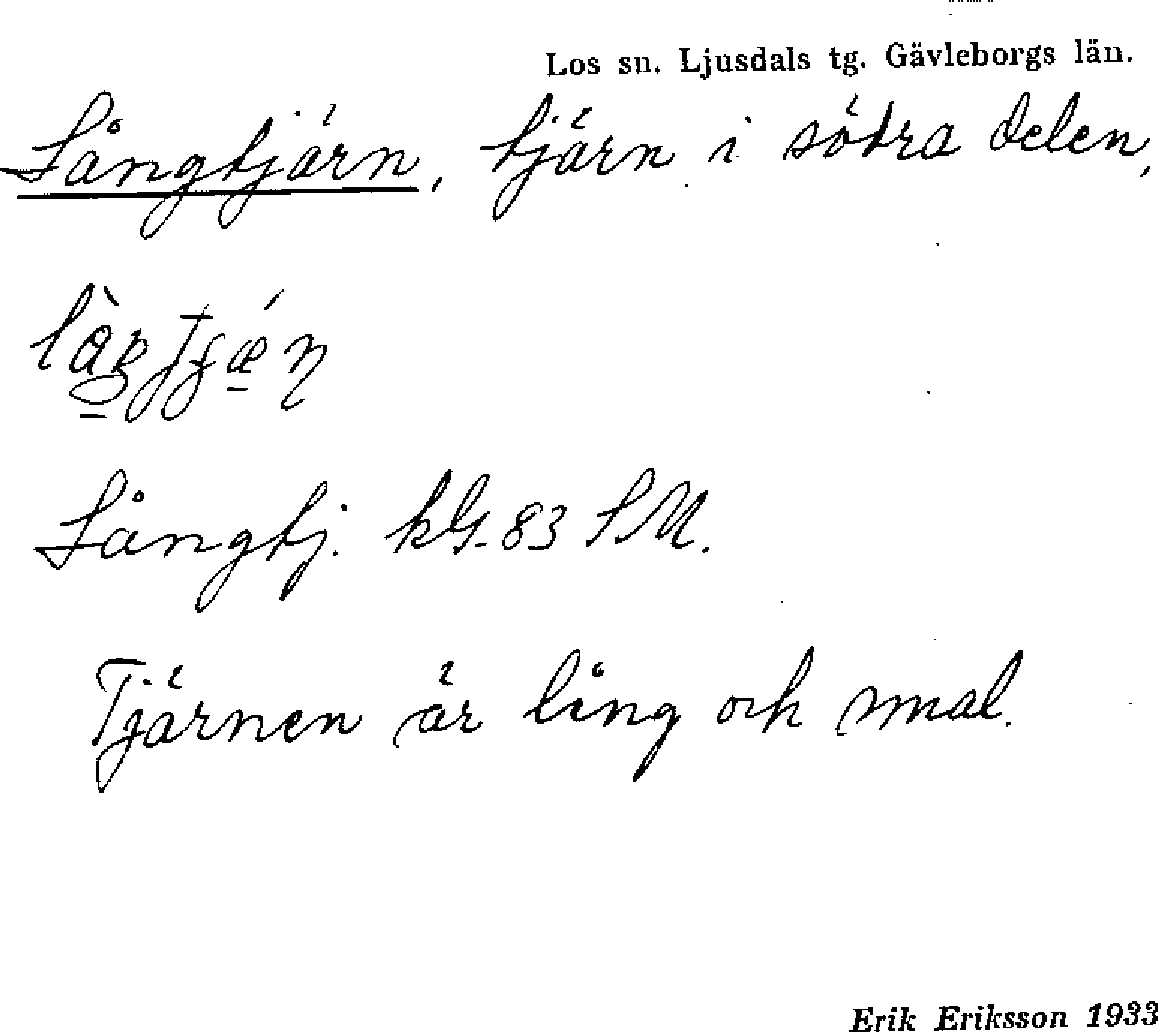 Los sn. Ljusdals tg. Gävleborgs län.
Långtjärn, tjärn i södra delen,
Långtj. kG. 83 SM.
Tjärnen är lång och smal.
Erik Eriksson 1933